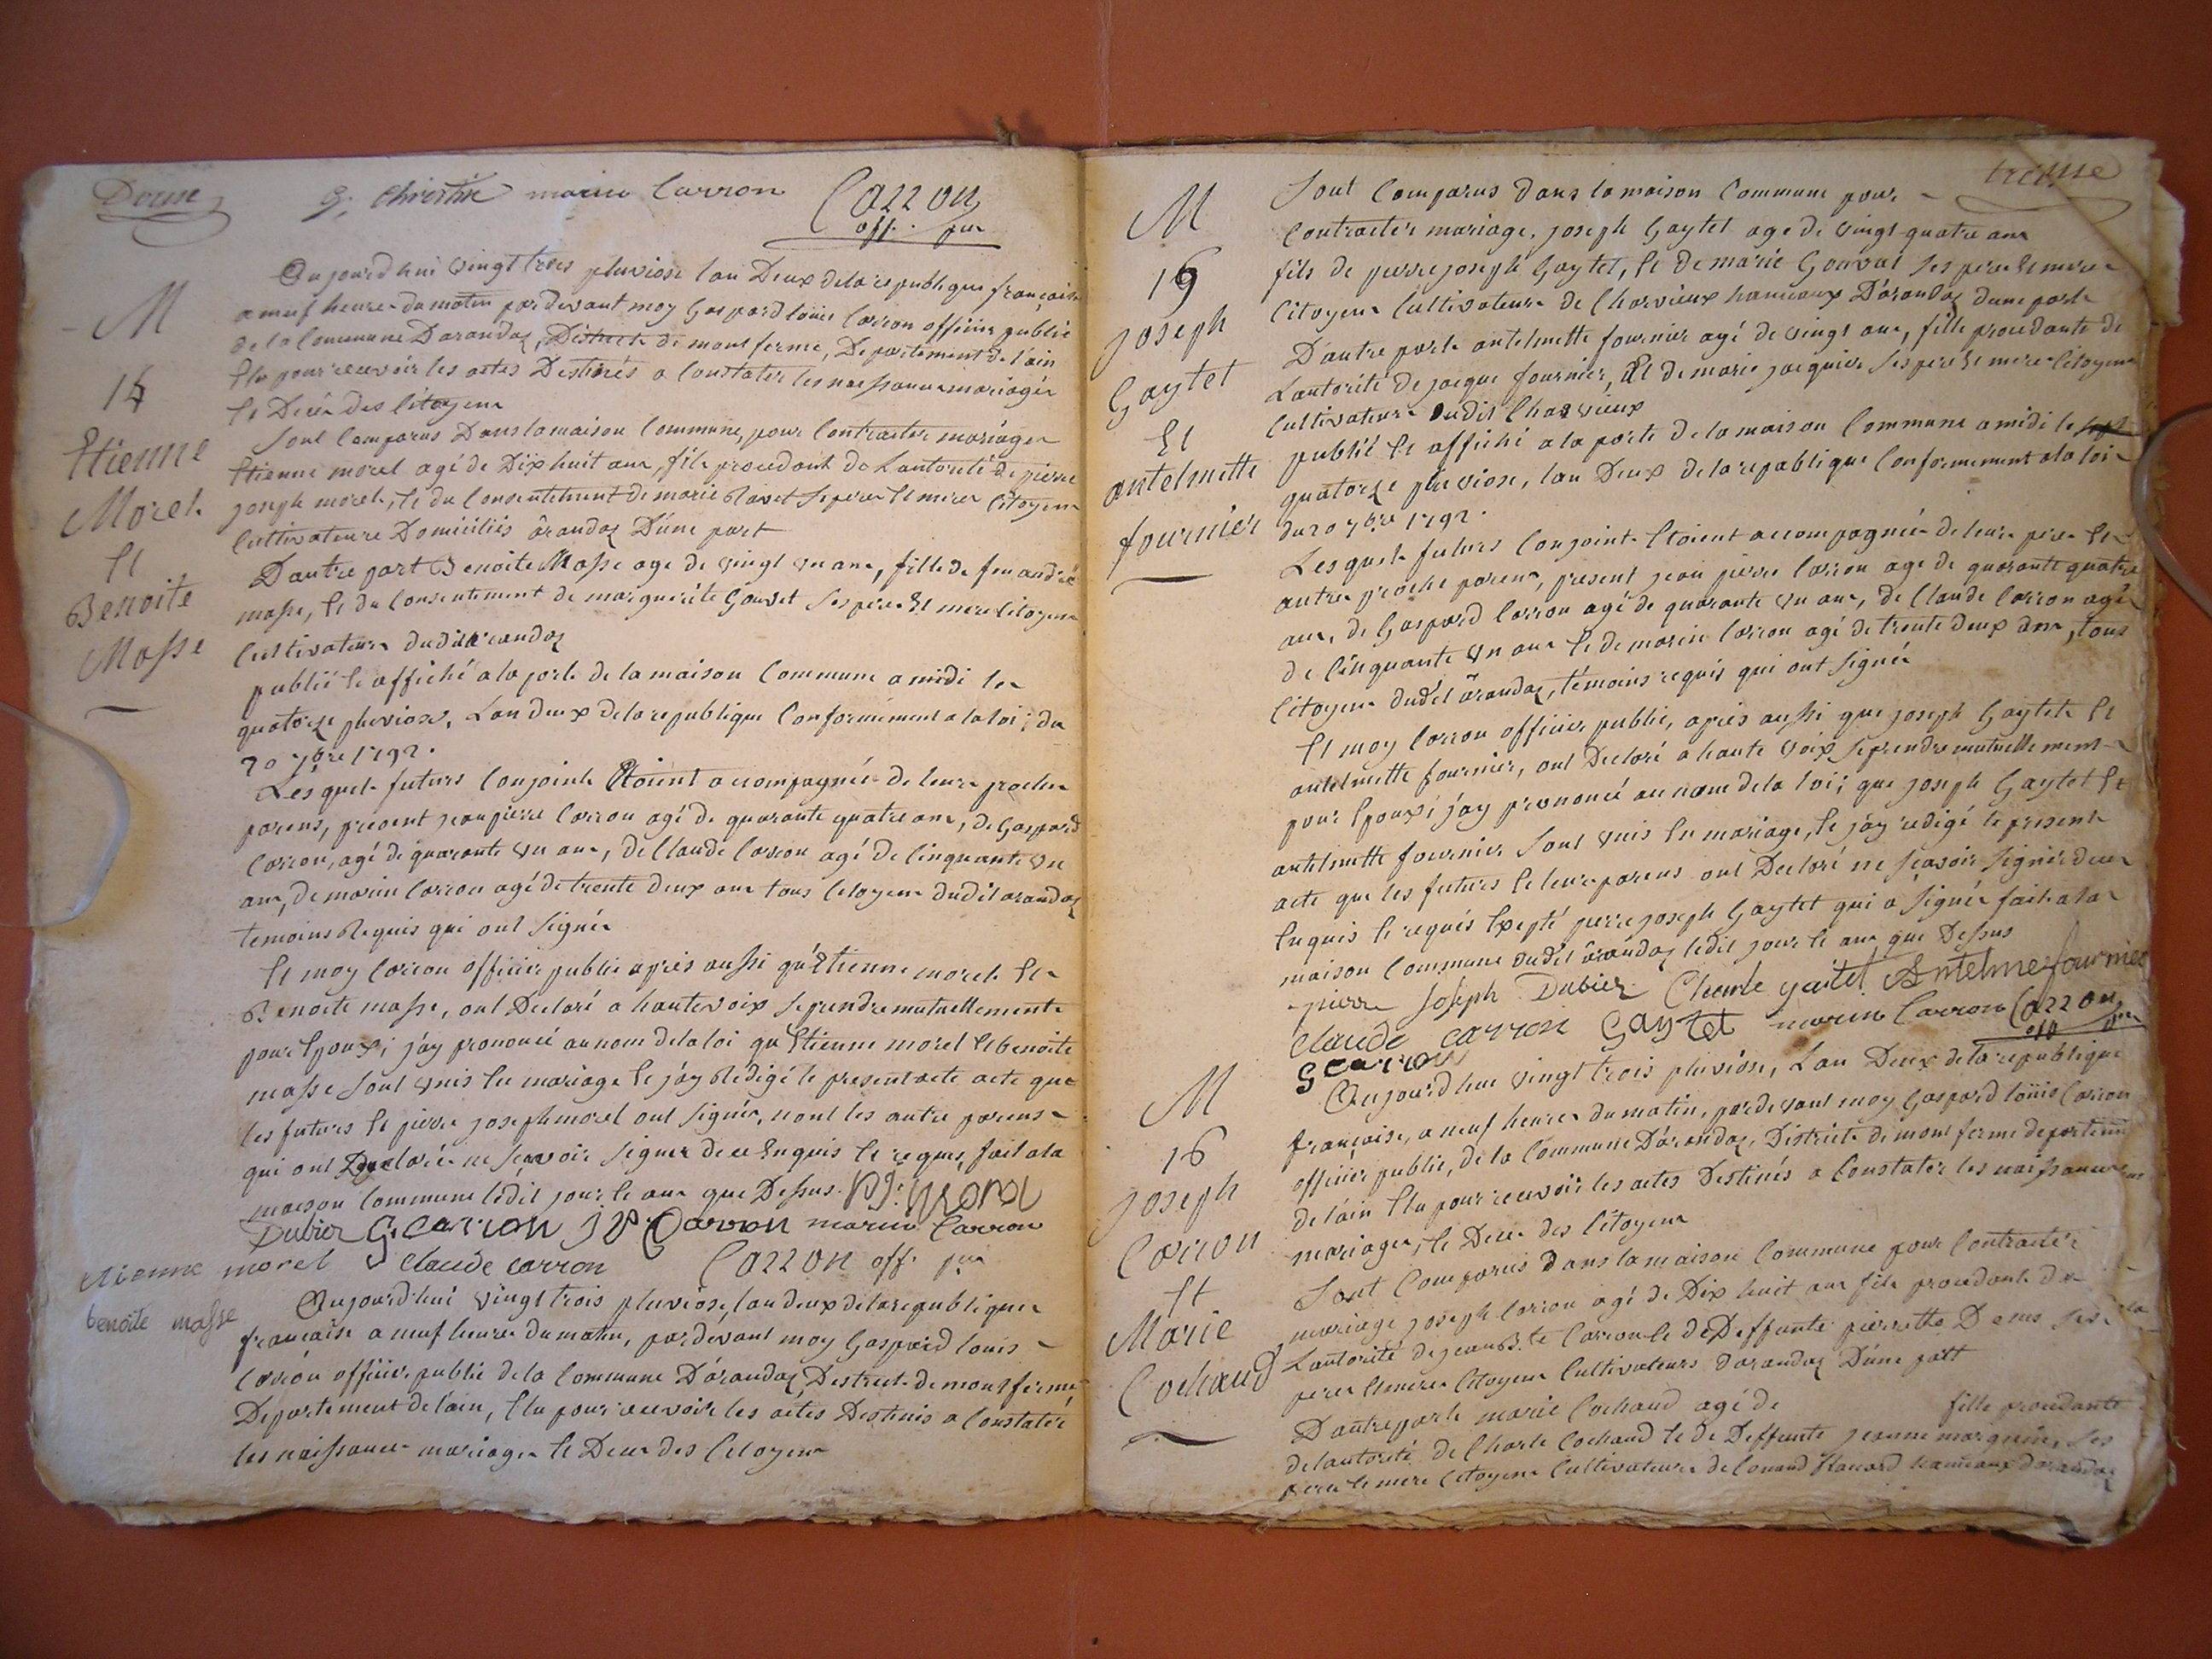 Douze
G. Chrestin marin Carron Carron
off. pu
M
14
Etienne
Morel
Et
Benoite
Masse
Aujourdhui vingt trois pluviose lan Deux dela republique françaisse
a neuf heures du matin pardevant moy Gaspard louis Carron officier public
de la Commune Darandaz, District de mont ferme, Departement de l'ain
Elu pour recevoir les actes Destinés a Constater les naissances mariages
Et Decés des Citoyens
Sont Comparus Dans la maison Commune, pour Contracter mariages
Etienne morel agé de Dix huit ans, fils procedant de Lautorité de pierre
joseph morel, Et du Consentement de marie Ravet ses pere Et mere Citoyens
Cultivateurs Domiciliés àrandaz D'une part
D'autre part Benoite Masse age de vingt un ans, fille de feu andré
masse, Et du Consentement de marguerite Gouvet ses pere Et mere Citoyens
Cultivateurs dudit arandaz
publié Et affiché a la porte de la maison Commune a midi le
quatorze pluviose, Lan deux dela republique Conformément a la loi du
20 7bre 1792.
Les quels futurs Conjoints Etoient accompagnés de leurs proches
parens, present jean pierre Carron agé de quarante quatre ans, de Gaspard
Carron, agé de quarante un ans, de Claude Carron agé de Cinquante un
ans, de marin Carron agé de trente deux ans tous Citoyens dudit arandaz
temoins Requis qui ont Signés
Et moy Carron officier public après aussi qu'Etienne morel Et
Benoite masse, ont Declaré a haute voix se prendre mutuellement
pour Epoux; j'ay prononcé au nom dela loi qu'Etienne morel Et benoite
masse Sont unis En mariage Et j'ay Rédigé le present acte acte que
les futurs Et pierre joseph morel ont Signés, nont les autre parens
qui ont Declarés ne scavoir signer de ce Enquis Et requis, fait a la
maison Commune ledit jour Et an que Dessus. P.J. Morel
Dubier G Carron J P Carron marin Carron
etienne morel Claude carron Carron off. pu
benoite masse
Aujourd'hui vingt trois pluviose, lan deux dela republique
francaise a neuf heures du matin, pardevant moy Gaspard louis
Carron officier public de la Commune D'arandaz, District de mont ferme
Departement de l'ain, Elu pour recevoir les actes Destinés a Constater
les naissances mariages Et Deces des Citoyens
treisse
M
joseph
Gaytet
Et
antelmette
fournier
Sont Comparus dans la maison Commune pour
Contracter mariage, joseph Gaytet age de vingt quatre ans
fils de pierre joseph Gaytet, Et de marie Gouvat ses pere Et mere
Citoyens Cultivateurs de Charvieux hameaux D'arandaz dune part
D'autre part antelmette fournier agé de vingt ans, fille procedante de
Lautorité de jacque fournier, Et de marie jacquier ses pere Et mere Citoyens
Cultivateurs dudit Charvieux
publié Et affiché a la porte de la maison Commune a midi le
quatorze pluviose, lan Deux dela republique Conformement a la loi
du 20 7bre 1792.
Les quels futurs Conjoints Etoient accompagnés de leurs pere Et
autres proche parens, present jean pierre Carron age de quarante quatre
ans, de Gaspard Carron agé de quarante un ans, de Claude Carron agé
de Cinquante un ans Et de marin Carron agé de trente deux ans, tous
Citoyens dudit arandaz, témoins requis qui ont signés
Et moy Carron officier public, après aussi que joseph Gaytet Et
antelmette fournier, ont Declaré a haute voix se prendre mutuellement
pour Epoux; j'ay prononcé au nom dela loi; que joseph Gaytet Et
antelmette fournier Sont unis En mariage, Et j'ay redigé le present
acte que les futurs Et leurs parens ont Declaré ne scavoir signer de ce
Enquis Et requis Excepté pierre joseph Gaytet qui a Signé fait a la
maison Commune dudit arandaz ledit jour Et an que Dessus
pierre Joseph Dubier Antelme fournier
Claude carron Gaytet marin Carron Carron
G Carron off pu
M
16
joseph
Carron
Et
Marie
Cochaud
Aujourd'hui vingt trois pluviose, Lan Deux de la republique
française, a neuf heures du matin, pardevant moy Gaspard louis Carron
officier public, de la Commune D'arandaz, District de mont ferme departement
de l'ain Elu pour recevoir les actes Destinés a Constater les naissances
mariages, Et Deces des Citoyens
Sont Comparus Dans la maison Commune pour Contracter
mariage joseph Carron agé de Dix huit ans fils procedant de
Lautorité de jean B.te Carron Et de Deffunte pierrette ses
pere Et mere Citoyens Cultivateurs darandaz D'une part
D'autre part marie Cochaud agé de fille procedante
de l'autorité de Charle Cochaud Et de Deffunte jeanne ses
pere Et mere Citoyens Cultivateurs de hameaux darandaz